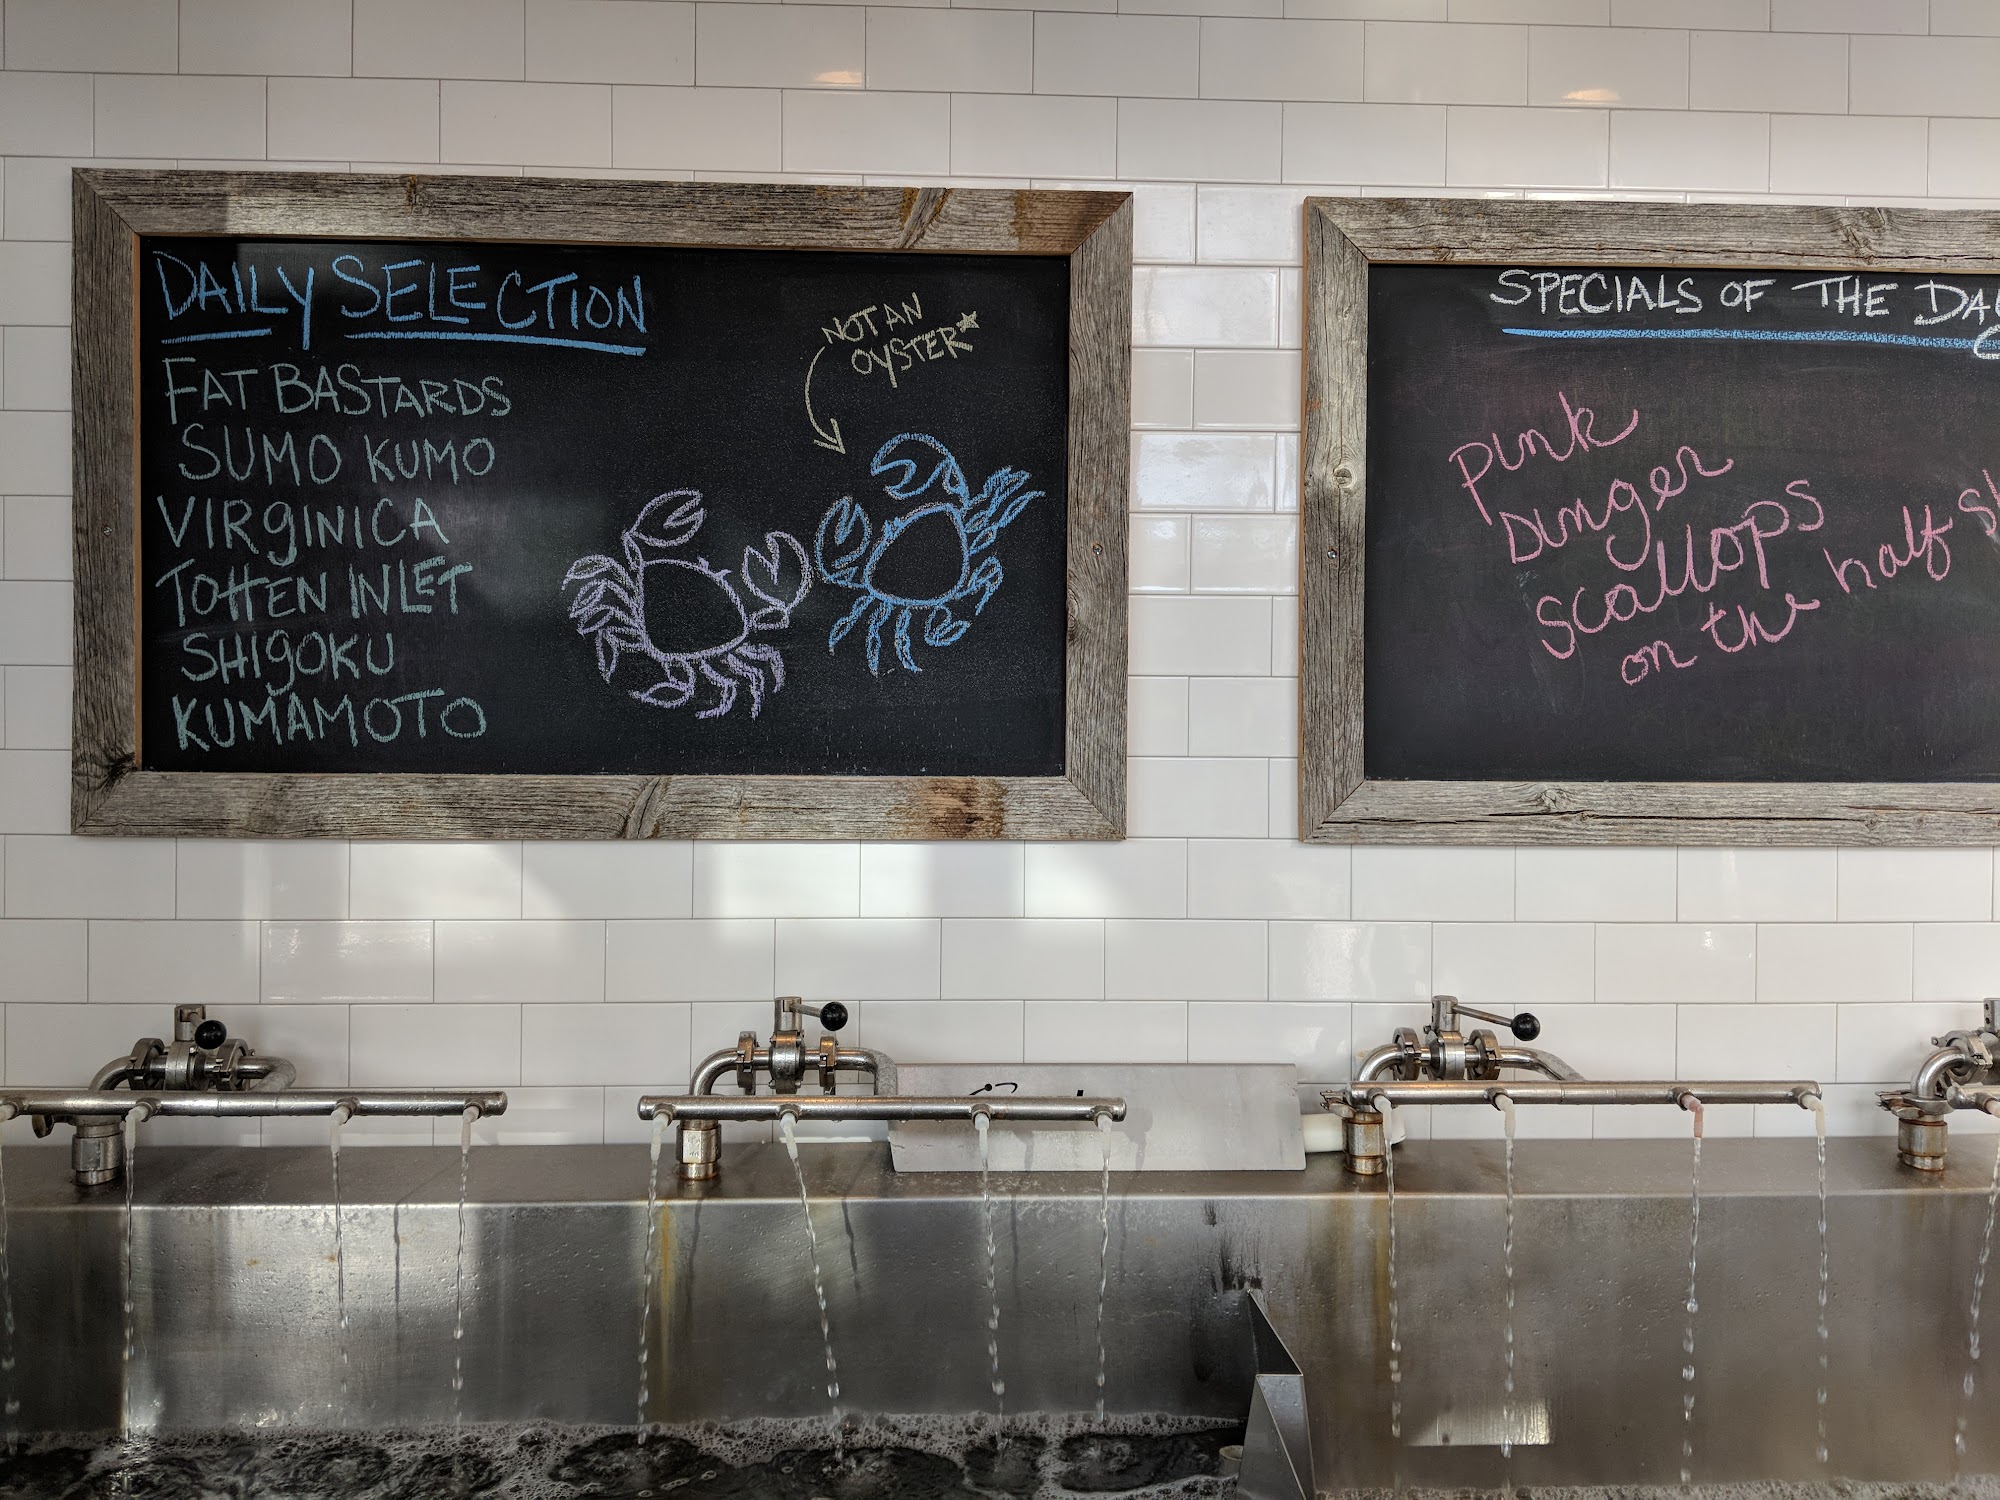 DAILY SELECTION
FAT BASTARDS
SUMO KUMO
VIRGINICA
TOTTEN INLET
SHIGOKU
KUMAMOTO
NOT AN
OYSTER*
SPECIALS OF THE DAY
pink
Dinger
scallops
on the half